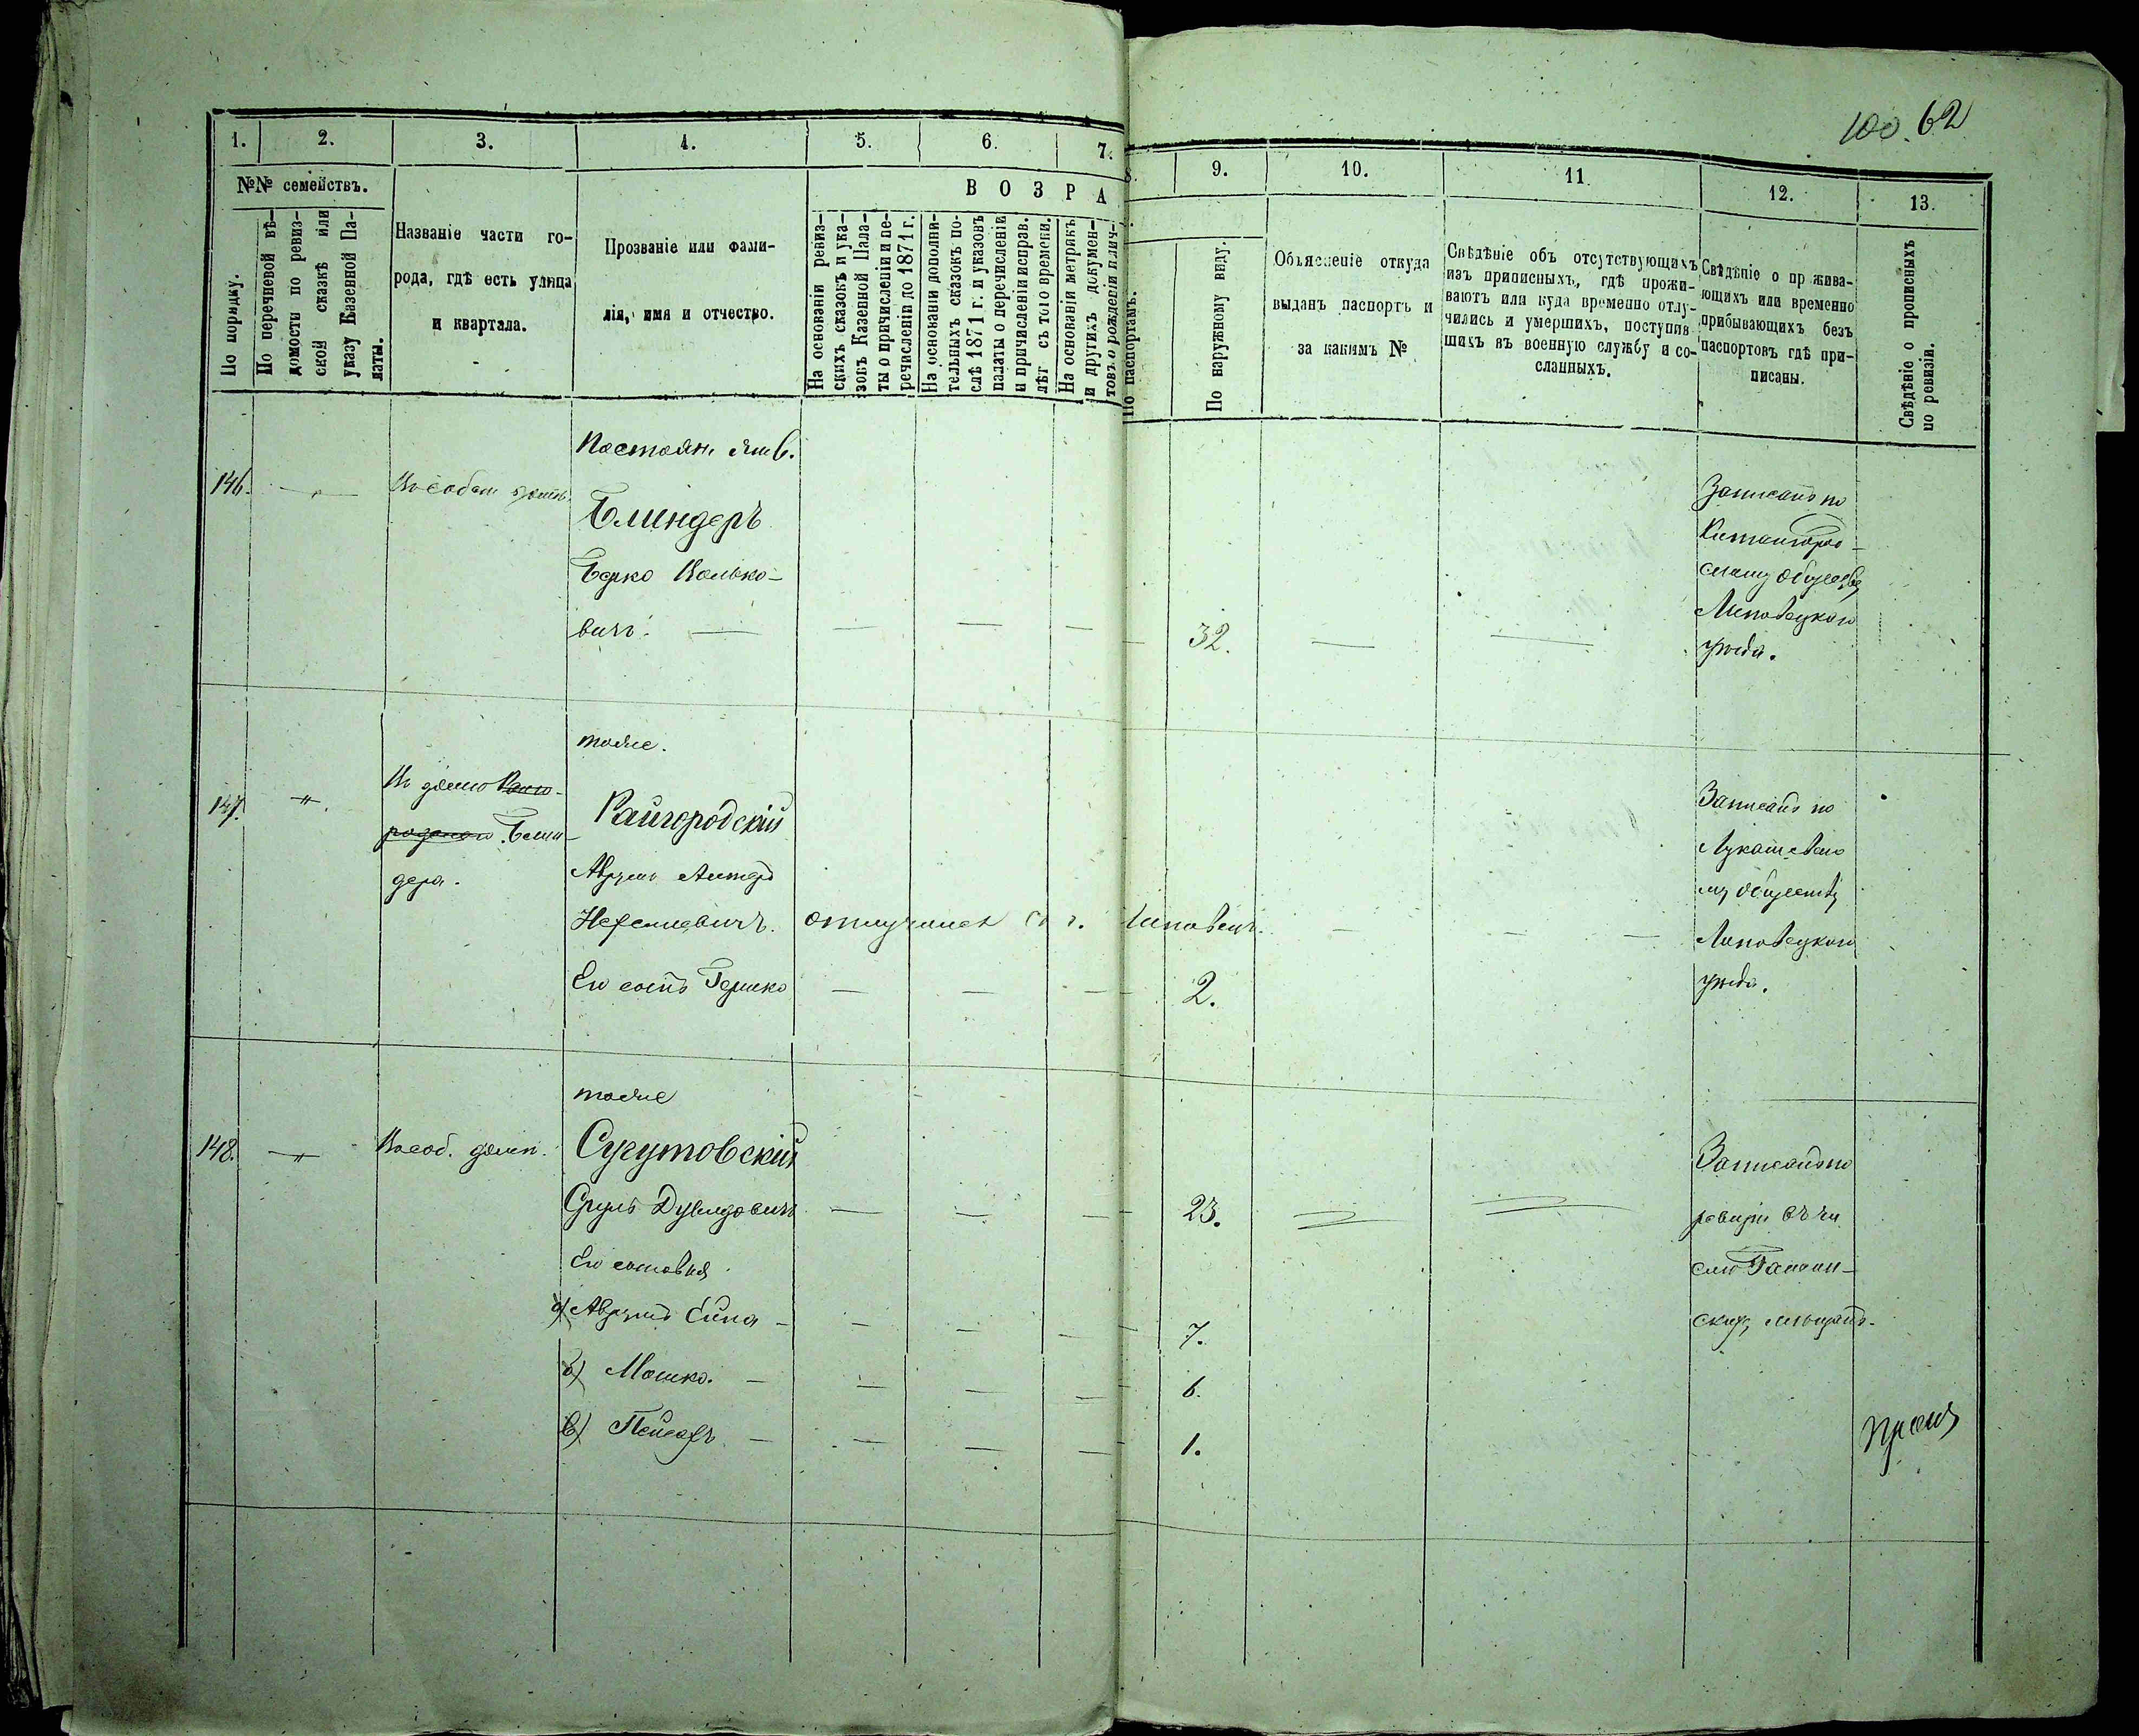 100. 62
1. 2. 3. 4. 5. 6. 7. 8. 9. 10. 11. 12. 13.
№№ семействъ.
По порядку.
По перечневой вѣ-
домости по ревиз-
ской сказкѣ или
указу Казенной Па-
латы.
Названіе части го-
рода, гдѣ есть улица
и квартала.
Прозваніе или фами-
лія, имя и отчество.
В О З Р А
На основаніи ревиз-
скихъ сказокъ и ука-
зокъ Казенной Пала-
ты о причисленіи и пе-
речисленіи до 1871 г.
На основаніи дополни-
тельныхъ сказокъ по-
слѣ 1871 г. и указовъ
палаты о перечисленіи
и причисленіи исправ.
лѣт съ того времени.
На основаніи метрикъ
и другихъ докумен-
товъ о рожденіи и лич-
По паспортамъ.
По наружному виду.
Объясненіе откуда
выданъ паспортъ и
за какимъ №
Свѣдѣніе объ отсутствующихъ
изъ приписныхъ, гдѣ прожи-
ваютъ или куда временно отлу-
чились и умершихъ, поступив-
шихъ въ военную службу и со-
сланныхъ.
Свѣдѣніе о пр жива-
ющихъ или временно
прибывающихъ безъ
паспортовъ гдѣ при-
писаны.
Свѣдѣніе о прописныхъ
по ревизіи.
Постоян. жив.
146.
Блиндеръ
Берко Волько-
вичъ. 32.
Записанъ по
Китайгород-
скому обществу
Липовецкаго
уѣзда.
тоже.
147.
Въ домѣ Райго-
родскаго Блин-
дера.
Райгородскій
Аврумъ
отлучился въ г. Липовецъ.
Его сынъ Гершко 2.
Записанъ по
Лукашевско
му обществу
Липовецкаго
уѣзда.
тоже
148. Въ соб. домѣ.
Сугутовскій
Сруль Дувидовичъ 23.
Его сыновья
а) Аврумъ 7.
б) Мошко. 6.
в) Пейсахъ 1.
Записанъ по
ревизіи въ чи
слѣ
мѣщанъ.